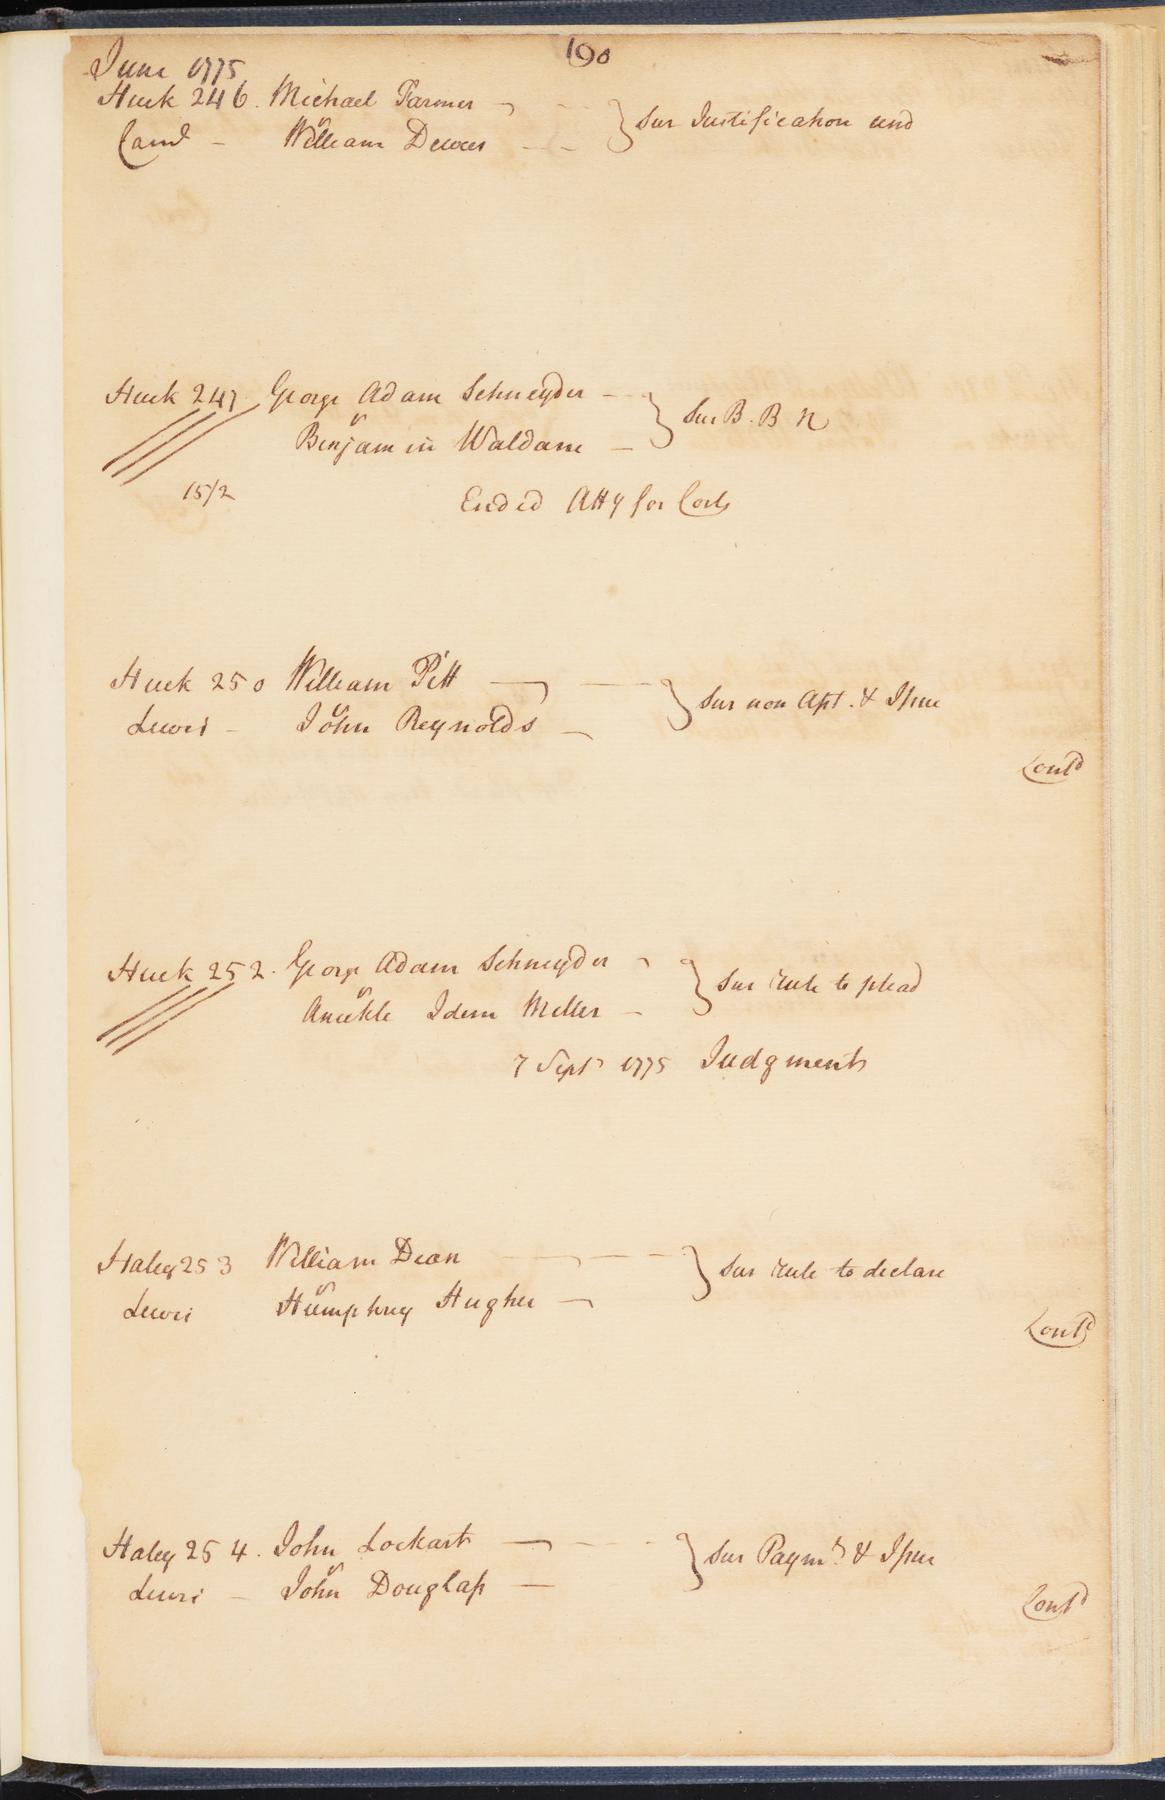 190
June 1775
Huck 246. Michael Farmer } Sur Justification and
Camd - vs William Dewees
Huck 247 George Adam Schneyder } Sur B. B N
vs Benjamin Waldam
15/2 Ended Atty for Costs
Huck 250 William Pitt } Sur non Apt. & Issue
Lewis - vs John Reynolds
Contd
Huck 252. George Adam Schneyder } Sur rule to plead
vs Idem Miller
7 Septr 1775 Judgment
Haley 253 William Dean } Sur rule to declare
Lewis vs Humphrey Hughes
Contd
Haley 254. John Lockart } Sur Paymt & Issue
Lewis - vs John Douglass
Contd